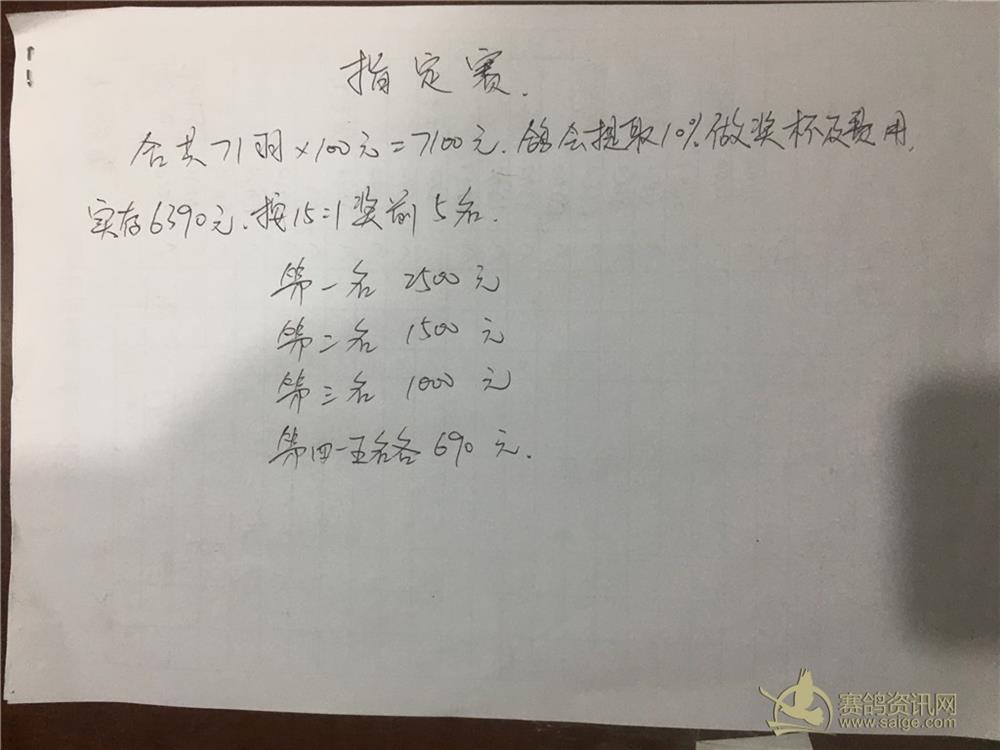 指定赛.
合共71羽×100元=7100元.鸽会提取10%做奖杯及费用,
实存6390元.按15:1奖前5名.
第一名 2500元
第二名 1500元
第三名 1000元
第四一五名各690元.
赛鸽资讯网
www.saige.com